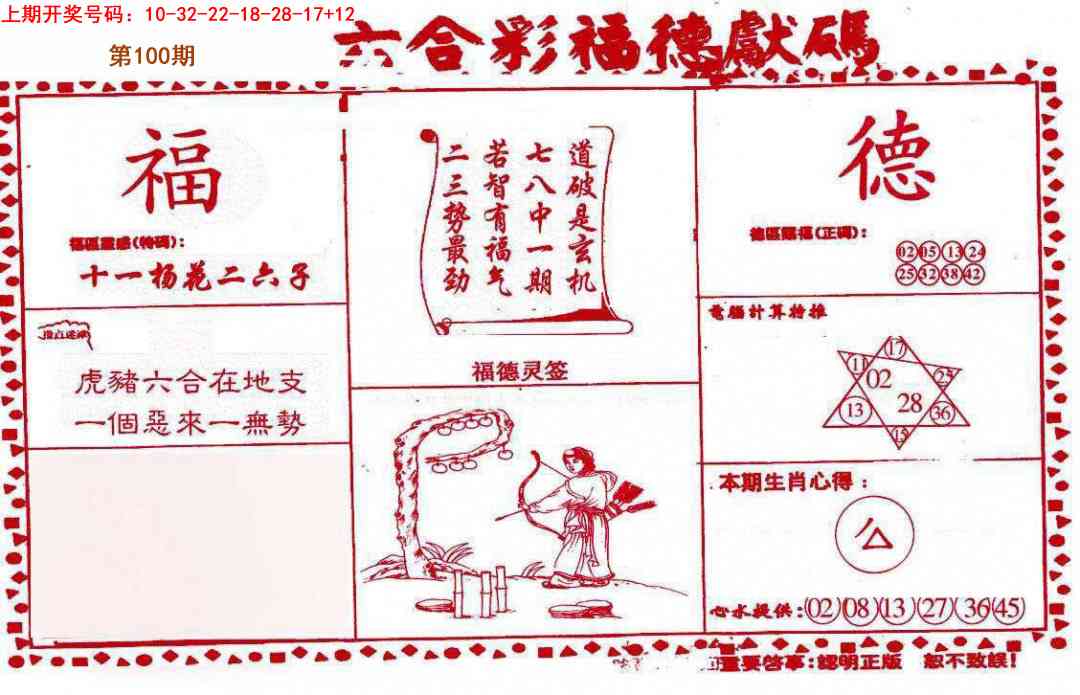 上期开奖号码：10-32-22-18-28-17+12
第100期
六合彩福德獻碼
福
福區靈感(特碼)：
十一杨花二六子
虎豬六合在地支
一個惡來一無勢
道破是玄机
七八中一期
若智有福气
二三势最劲
福德灵签
德
德區賜福(正碼)：
02 05 13 24
25 32 38 42
電腦計算特推
17
11 02 25
13 28 36
15
本期生肖心得：
心水提供：(02)(08)(13)(27)(36)(45)
重要啓事：認明正版 恕不致誤！